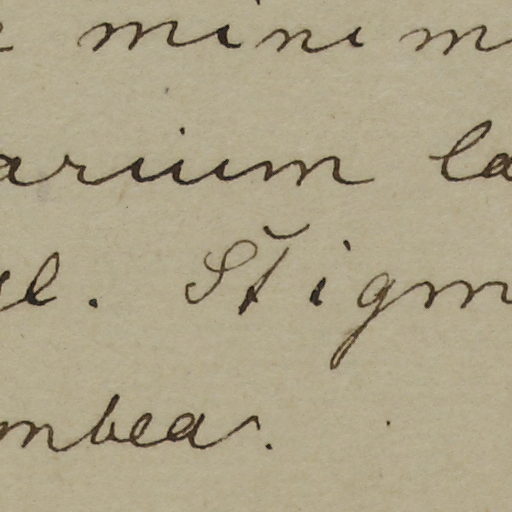 minim
arium la
el. Stigm
mbea.